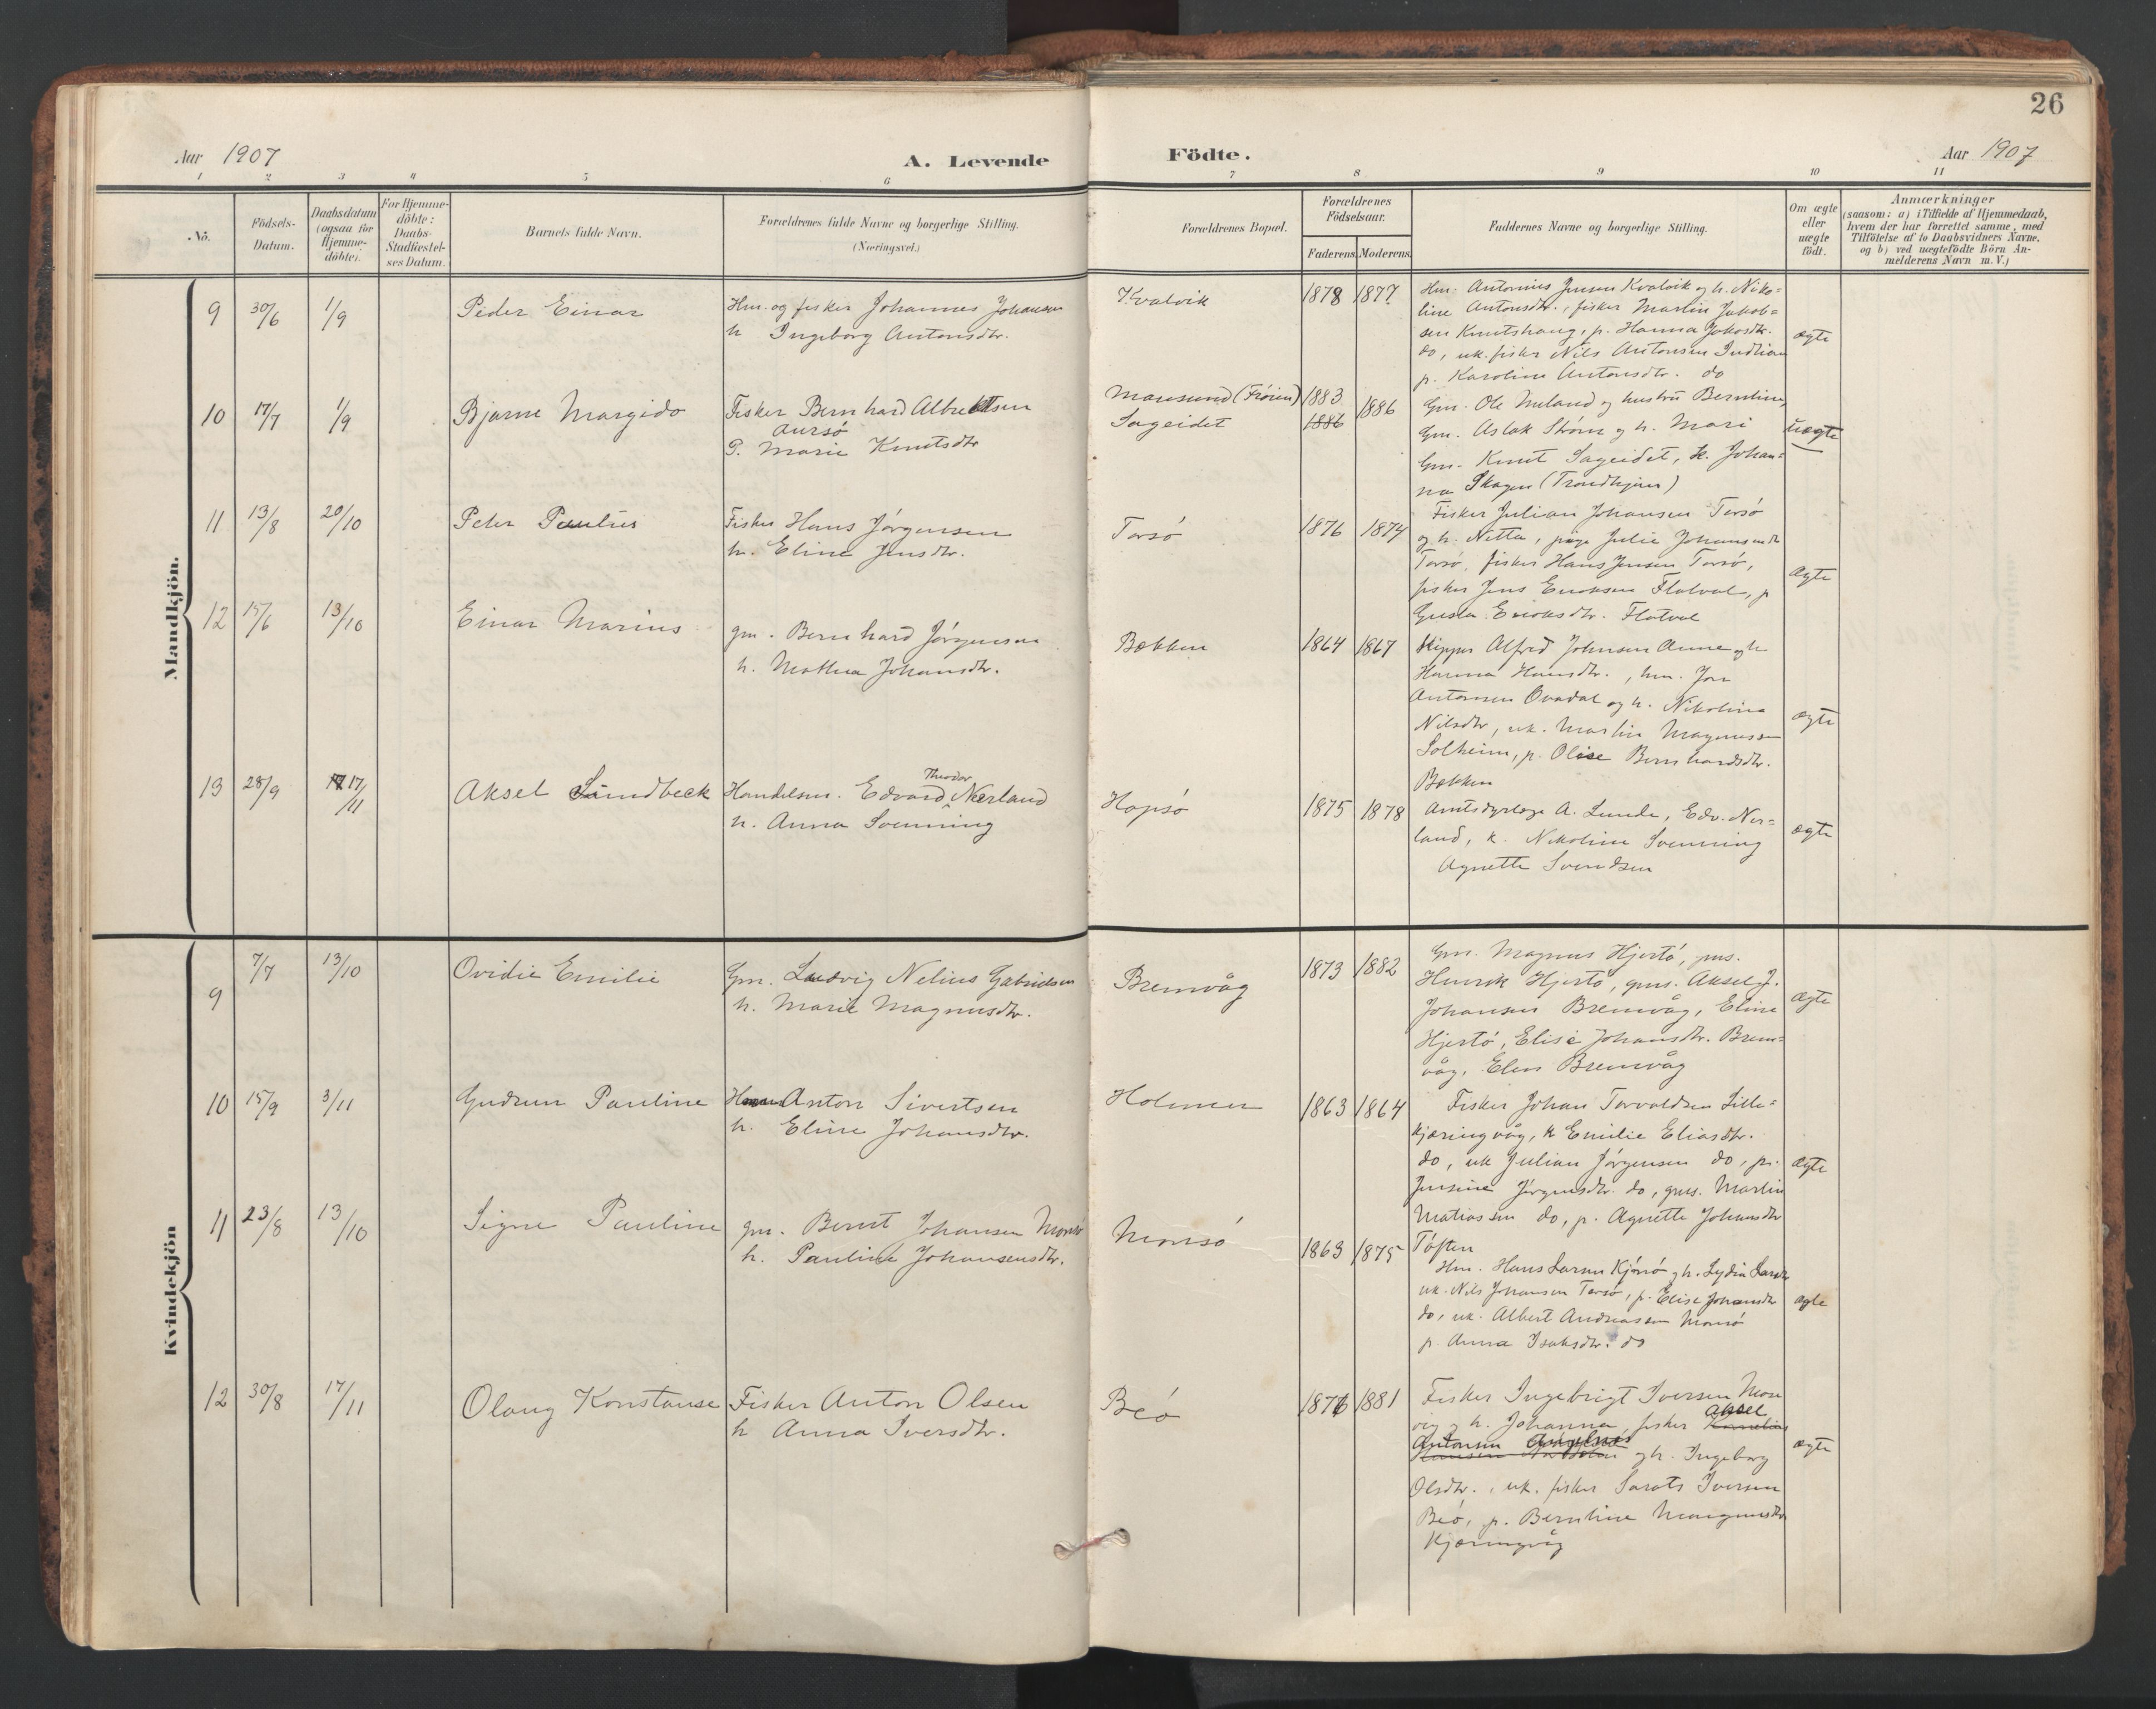 26
Aar 1907
A. Levende
Födte.
Aar 1907
1 2 3 4 5 6 7 8 9 10 11
No.
Födsels-
Datum.
Daabsdatum
(ogsaa for
Hjemme-
döbte).
For Hjemme-
döbte:
Daabs-
Stadfæstel-
ses Datum.
Barnets fulde Navn.
Forældrenes fulde Navne og borgerlige Stilling.
(Næringsvei.)
Forældrenes Bopæl.
Forældrenes
Födselsaar.
Faderens. Moderens.
Faddernes Navne og borgerlige Stilling.
Om ægte
eller
uægte
födt.
Anmærkninger
(saasom: a) i Tilfælde af Hjemmedaab,
hvem der har forrettet samme, med
Tilföielse af to Daabsvidners Navne,
og b) ved uægtefödte Börn An-
melderens Navn m. V.)
Mandkjön.
9 30/6 1/9 Peder Einar
Hm. og fisker Johannes Johansen
h Ingeborg Antonsdtr.
Kvalvik
1878 1877
Hm. Antonius Jensen Kvalvik og h. Niko-
line Antonsdtr., fisker Martin Jakob-
sen Knutshaug, p. Hanna Jakobsdtr.
do, uk. fisker Nils Antonsen Indlian
p. Karoline Antonsdtr. do
ægte
10 17/7 1/9 Bjarne Margido
Fisker Bernhard Albrektsen
Aursö
P. Marie Knutsdtr
Mausund (Fröien)
Sageidet
1883
1886
1886
Gm. Ole Nuland og hustru Berntine,
Gm. Aslak Ström og h. Mari
Gm. Knut Sageidet, k. Johan-
na Skagen (Trondhjem)
uægte
11 13/8 20/10 Peter Paulus
Fisker Hans Jörgensen
h. Eline Jensdtr.
Torsö
1876 1874
Fisker Julian Johansen Torsö
og h. Netta, pige Julie Johansendtr
Torsö, fisker Hans Jensen Torsö,
fisker Jens Eriksen Flatval, p
Gusta Eriksdtr. Flatval
ægte
12 15/6 13/10 Einar Marius
gm. Bernhard Jörgensen
h. Mathea Johansdtr.
Bækken
1864 1867
Skipper Alfred Johnsen Aune og h
Hanna Hansdtr., hm. Jon
Antonsen Ovadal og h. Nikoline
Nilsdtr, uk. Martin Magnussen
Solheim, p. Olise Bernhardsdtr.
Bækken
ægte
13 28/9 17/11 Aksel Lundbeck
Handelsm. Edvard Theodor Nerland
h. Anna Svenning
Hopsö
1875 1878
Amtsdyrlæge A. Lunde, Edv. Ner-
land, k. Nikoline Svenning
Agnette Svendsen
ægte
Kvindekjön
9 7/7 13/10 Ovidie Emilie
Gm. Ludvig Nelius Gabrielsen
h. Marie Magnusdtr.
Bremvåg
1873 1882
Gm. Magnus Hjertö, gms.
Henrik Hjertö, gms. Aksel J.
Johansen Bremvåg, Eline
Hjertö, Elise Johansdtr. Brem-
våg, Elen Bremvåg
ægte
10 15/9 3/11 Gudrun Pauline
Anton Sivertsen
h. Eline Johansdtr.
Holmen
1863 1864
Fisker Johan Torvaldsen Lille-
kjæringvåg, k Emilie Eliasdtr.
do, uk Julian Jörgensen do, p.
Jensine Jörgensdtr. do, gms. Martin
Matiassen do, p. Agnette Johansdtr
Töften
ægte
11 23/8 13/10 Signe Pauline
gm. Bernt Johansen Monsö
h. Pauline Johansensdtr.
Monsö
1863 1875
Hm. Hans Larsen Kjönsö og h. Lydia Larsdtr
uk. Nils Johansen Torsö, p. Elise Johansdtr
do, uk. Albert Andreassen Monsö
p. Anna Isaksdtr. do
ægte
12 30/8 17/11 Olaug Konstanse
Fisker Anton Olsen
h Anna Iversdtr.
Beö
1876 1881
Fisker Ingebrigt Iversen Mose
vig og h. Johanna, fisker Aksel
Antonsen og h. Ingeborg
Olsdtr., uk. fisker Iversen
Beö, p. Berntine Magnusdtr
Kjæringvåg
ægte